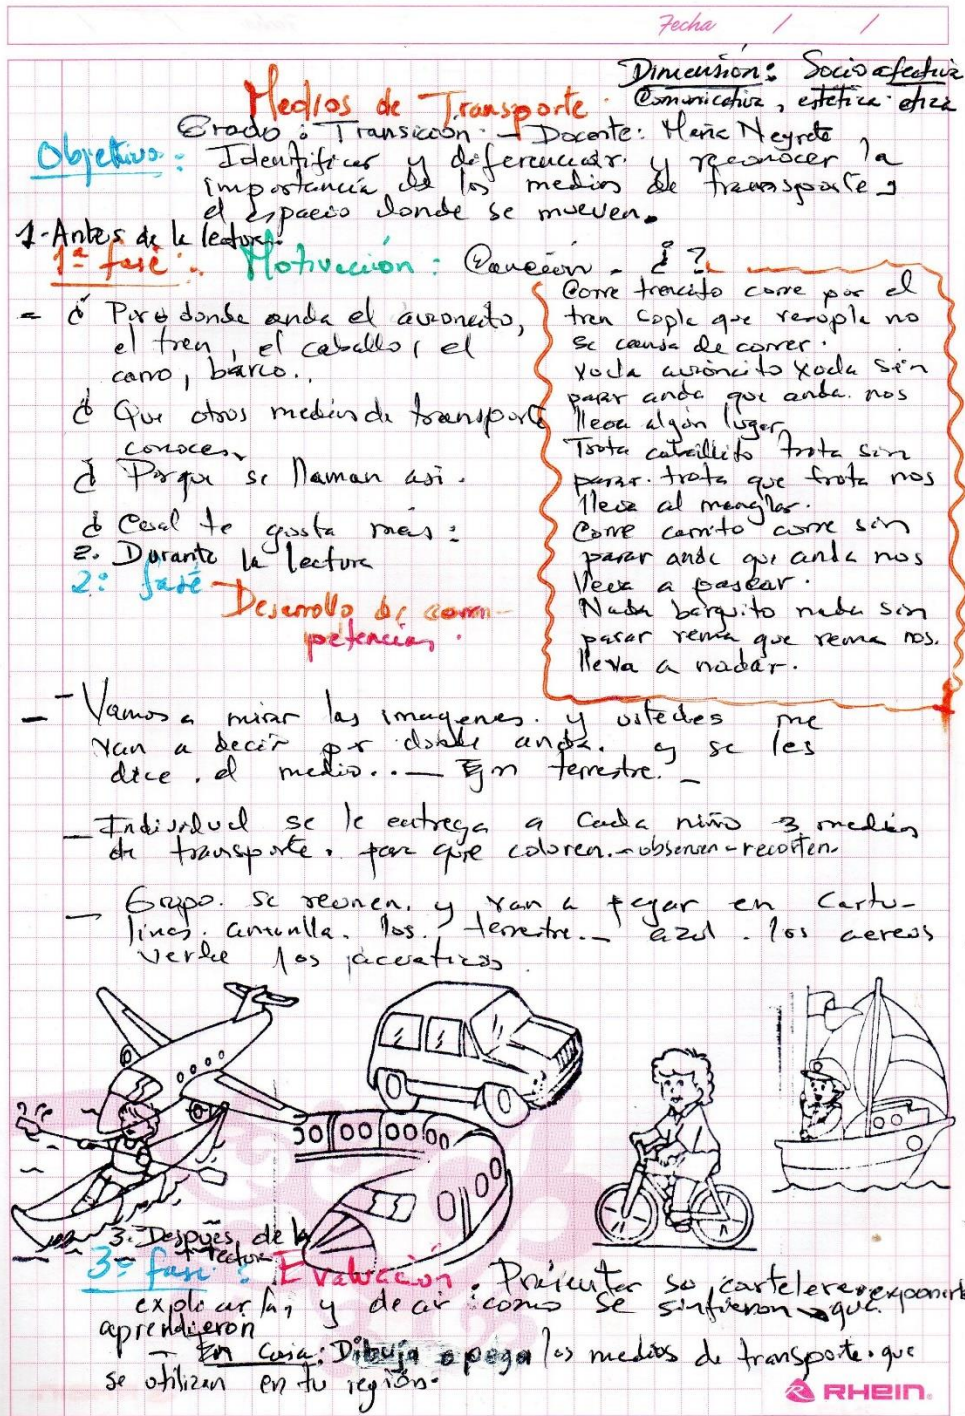 Fecha / /
Dimensión: Socioafectiva
Comunicativa, estética ética
Medios de Transporte.
Grado: Transición. - Docente: María Negrete
Objetivo: Identificar y diferenciar y reconocer la
importancia de los medios de transporte y
el espacio donde se mueven.
1-Antes de la lectura.
1ª fase: Motivación: Canción - ¿?
- ¿ Por donde anda el avioncito,
el tren, el caballo, el
carro, barco..
¿ Que otros medios de transporte
conoces.
¿ Porque se llaman asi.
¿ Cual te gusta más:
2. Durante la lectura
2ª fase Desarrollo de com-
petencias.
Corre trencito corre por el
tren sopla que resopla no
se cansa de correr.
Vuela avioncito vuela sin
parar anda que anda nos
lleva algún lugar
Trota caballito trota sin
parar. trota que trota nos
lleva al manglar.
Corre carrito corre sin
parar anda que anda nos
lleva a pasear.
Nada barquito nada sin
parar rema que rema nos.
lleva a nadar.
- Vamos a mirar las imagenes. y ustedes me
van a decir por donde anda. y se les
dice. el medio.. — terrestre. -
- Individual se le entrega a cada niño 3 medios
de transporte. para que coloren.-observen-recorten.
- Grupo. se reunen. y van a pegar en Cartu-
linas. amarilla. los. terrestre.- azul. los aereos
verde los acuaticos
3. Después de la
lectura
3ª fase: Evaluación. Presentar su cartelera exponerla
explicarla, y decir como se sintieron que
aprendieron
- En casa: Dibuja o pega los medios de transporte. que
se utilizan en tu región.
RHEIN.